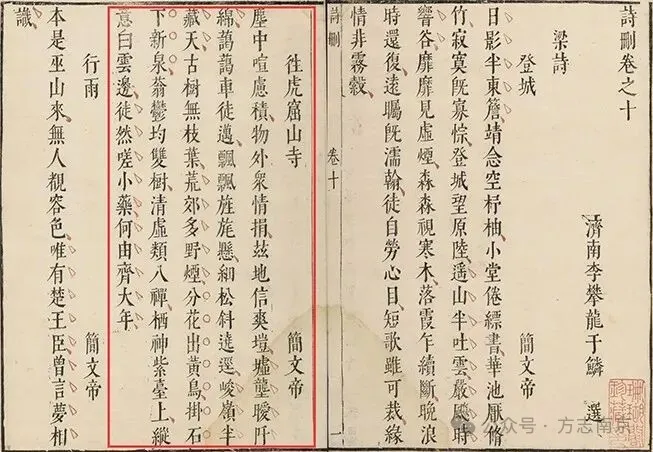 詩刪卷之十
濟南李攀龍于鱗 選
梁詩
登城 簡文帝
日影半東簷靖念空杼柚小堂倦縹書華池厭脩
竹寂寞旣寡悰登城望原陸遥山半吐雲嚴颸時
響谷靡靡見虛煙森森視寒木落霞乍續斷晚浪
時還復遠矚旣濡翰徒自勞心目短歌雖可裁緣
情非霧縠
卷十
一
徃虎窟山寺 簡文帝
塵中喧慮積物外衆情捐玆地信爽塏墟壟曖阡
綿藹藹車徒邁飄飄旌旄懸細松斜遶逕峻嶺半
藏天古樹無枝葉荒郊多野煙分花出黃鳥掛石
下新泉蓊鬱均雙樹清虛類八禪栖神紫臺上縱
意白雲邊徒然嗟小藥何由齊大年
行雨 簡文帝
本是巫山來無人覩容色唯有楚王臣曾言夢相
識
公众号·方志南京